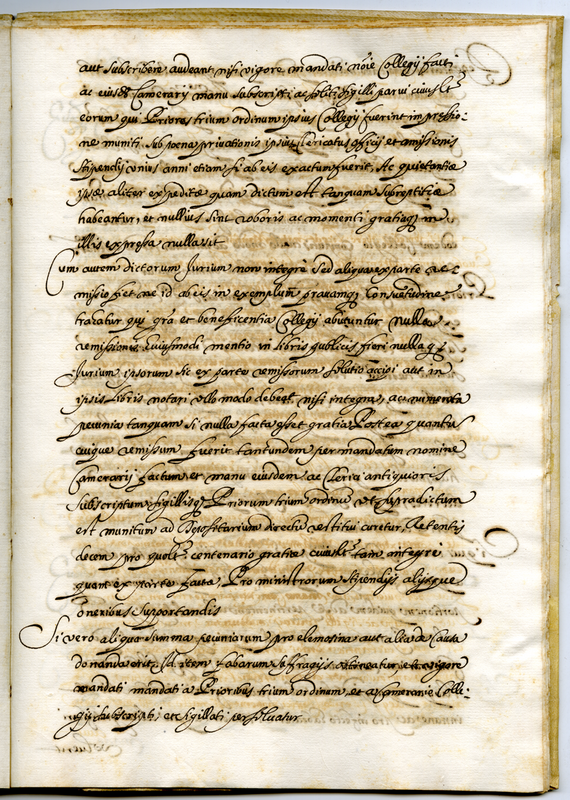 aut subscribere audeant nisi vigore mandati noi͂e Collegij facti
ac eiusd͂ Camerarij manu subscripti ac soliti sigilli parvi cuiuslt͂
eorum qui Priores trium ordinum ipsius Collegij fuerint impressio-
ne muniti, sub poena privationis ipsius Clericatus officij et amissionis
stipendij unius anni etiam si ab eis exactum fuerit, Ac quietantiæ
ipsæ aliter expeditæ quam dictum est tanquam subreptitiæ
habeantur, et nullius sint roboris ac momenti gratiaq; in
illis expressa nulla sit
Cum autem dictorum Jurium non integrè sed aliqua ex parte re-
missio fiet ne id ab eis in exemplum pravamq; Consuetudinem
trahatur qui gr͂a et beneficentia Collegij abutuntur nulla
remissionis huiusmodi mentio in libris publicis fieri nullaq;
Jurium ipsorum sic ex parte remissorum solutio accipi aut in
ipsis libris notari ullo modo debeat nisi integra, ac numerata
pecunia tanquam si nulla facta esset gratia Postea quantum
cuique remissum fuerit tantundem per mandatum nomine
Camerarij factum et manu eiusdem ac Clerici antiquioris
subscriptum sigillisq; Priorum trium ordinum ut supradictum
est munitum ad Depositarium directum restitui curetur, Retentis
decem pro quolt͂ centenario gratiæ cuiuslt͂ tam integrè
quam ex parte factæ, Pro ministrorum stipendijs alijsque
oneribus supportandis
Si vero aliqua summa pecuniarum pro elemosina aut alia de Causa
donanda erit, Id item fabarum suffragijs obtineatur et vigore
mandati mandati a Prioribus trium ordinum, et a Camerario Colle-
gij subscripti, et sigillati persolvatur